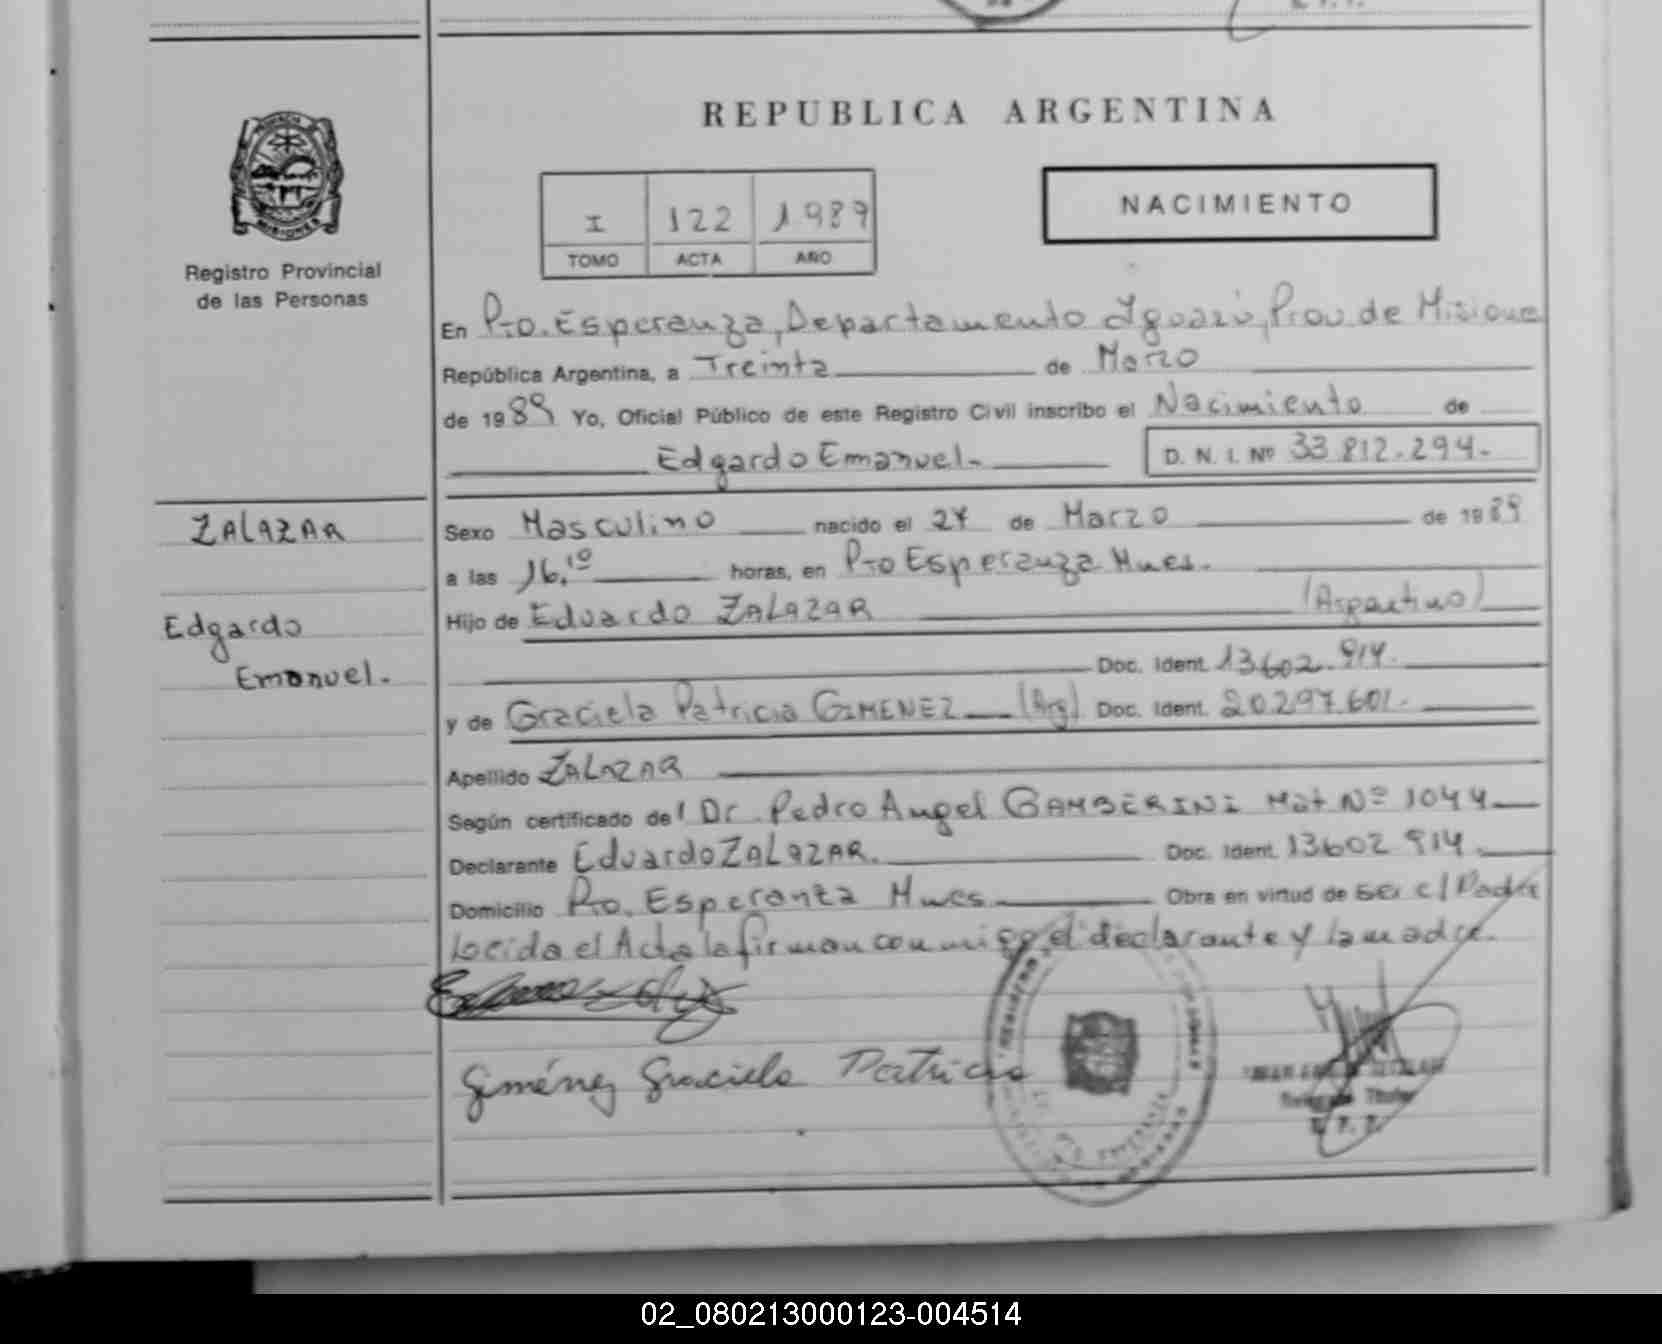 REPUBLICA ARGENTINA
Registro Provincial
de las Personas
I 122 1989
TOMO ACTA AÑO
NACIMIENTO
En Pto. Esperanza, Departamento Iguazú, Prov. de Misiones
República Argentina, a Treinta de Marzo
de 1989 Yo, Oficial Público de este Registro Civil inscribo el Nacimiento de
Edgardo Emanuel.
D. N. I. Nº 33.812.294.-
ZALAZAR
Edgardo
Emanuel.
Sexo Masculino nacido el 24 de Marzo de 1989
a las 16,10 horas, en Pto Esperanza Mnes.
Hijo de Eduardo ZALAZAR (Argentino)
Doc. Ident. 13.602.914.
y de Graciela Patricia GIMENEZ (Arg) Doc. Ident. 20.297.601.
Apellido ZALAZAR
Según certificado del Dr. Pedro Angel GAMBERINI Mat Nº 1044
Declarante Eduardo ZALAZAR. Doc. Ident. 13602 914.
Domicilio Pto. Esperanza Mnes. Obra en virtud de ser el Padre
Leeida el Acta la firman conmigo el declarante y la madre.
Giménez Graciela Patricia
Titular
02_080213000123-004514